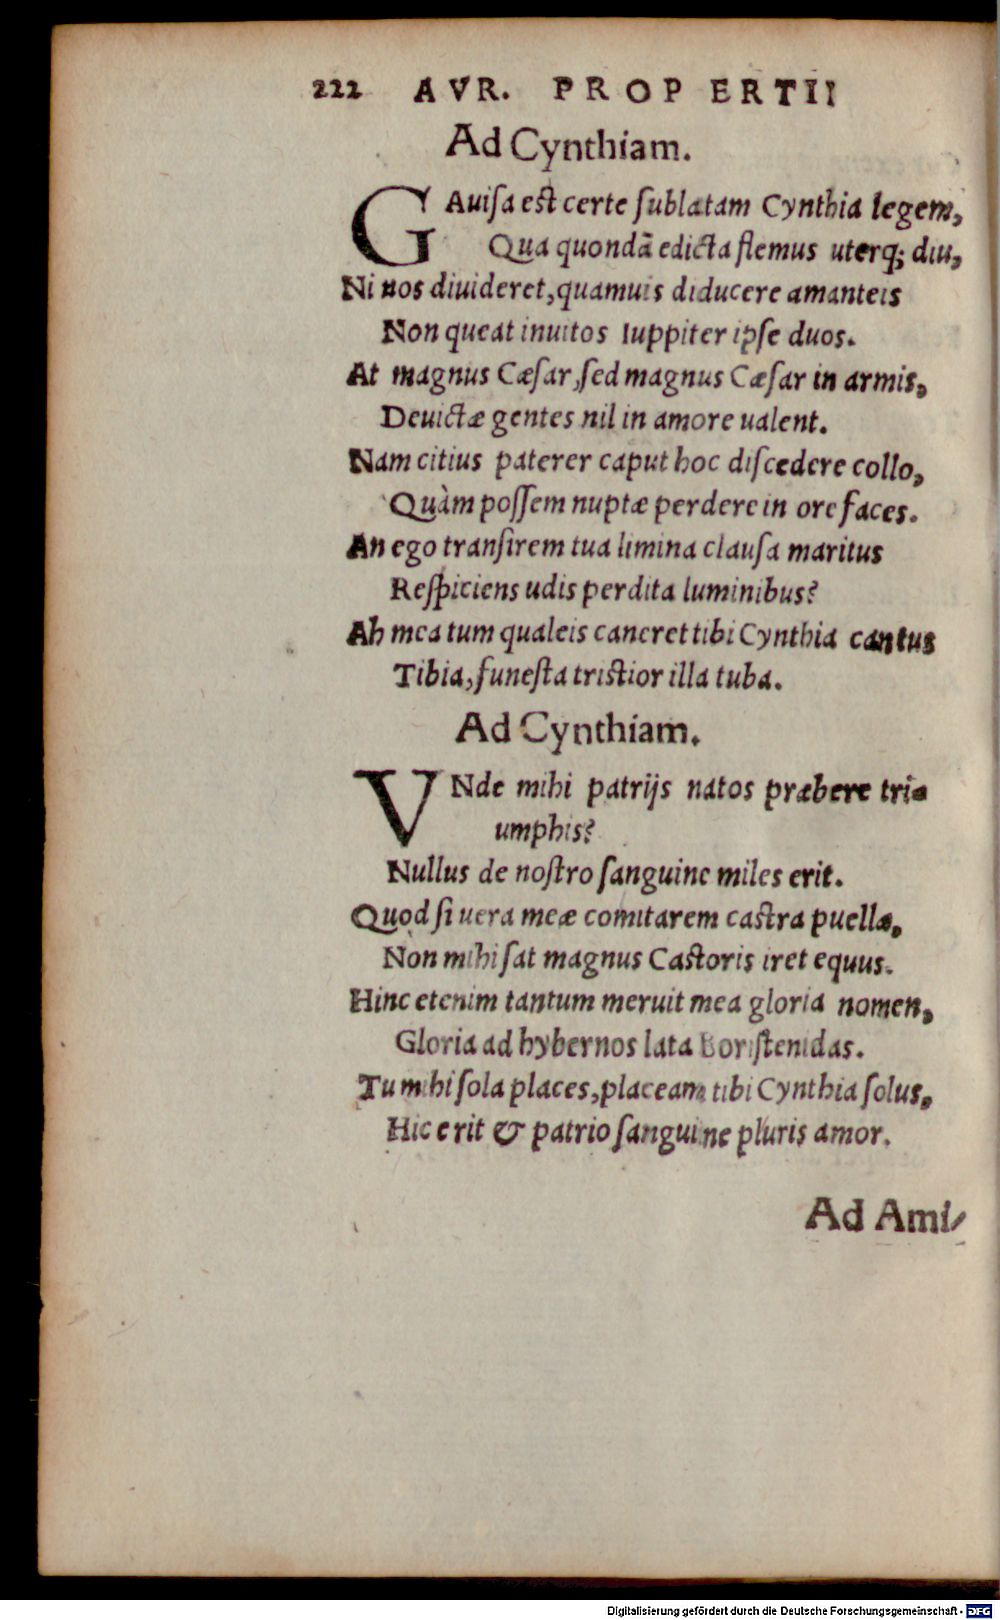 222 AVR. PROPERTII
Ad Cynthiam.
GAuisa est certe sublatam Cynthia legem,
Qua quondã edicta flemus uterq; diu,
Ni nos diuideret, quamuis diducere amanteis
Non queat inuitos Iuppiter ipse duos.
At magnus Cæsar, sed magnus Cæsar in armis,
Deuictæ gentes nil in amore ualent.
Nam citius paterer caput hoc discedere collo,
Quàm possem nuptæ perdere in ore faces.
An ego transirem tua limina clausa maritus
Respiciens udis perdita luminibus?
Ah mea tum qualeis caneret tibi Cynthia cantus
Tibia, funesta tristior illa tuba.
Ad Cynthiam.
VNde mihi patrijs natos præbere tri-
umphis?
Nullus de nostro sanguine miles erit.
Quod si uera meæ comitarem castra puellæ,
Non mihi sat magnus Castoris iret equus.
Hinc etenim tantum meruit mea gloria nomen,
Gloria ad hybernos lata Boristenidas.
Tu mihi sola places, placeam tibi Cynthia solus,
Hic erit & patrio sanguine pluris amor.
Ad Ami-
Digitalisierung gefördert durch die Deutsche Forschungsgemeinschaft - DFG